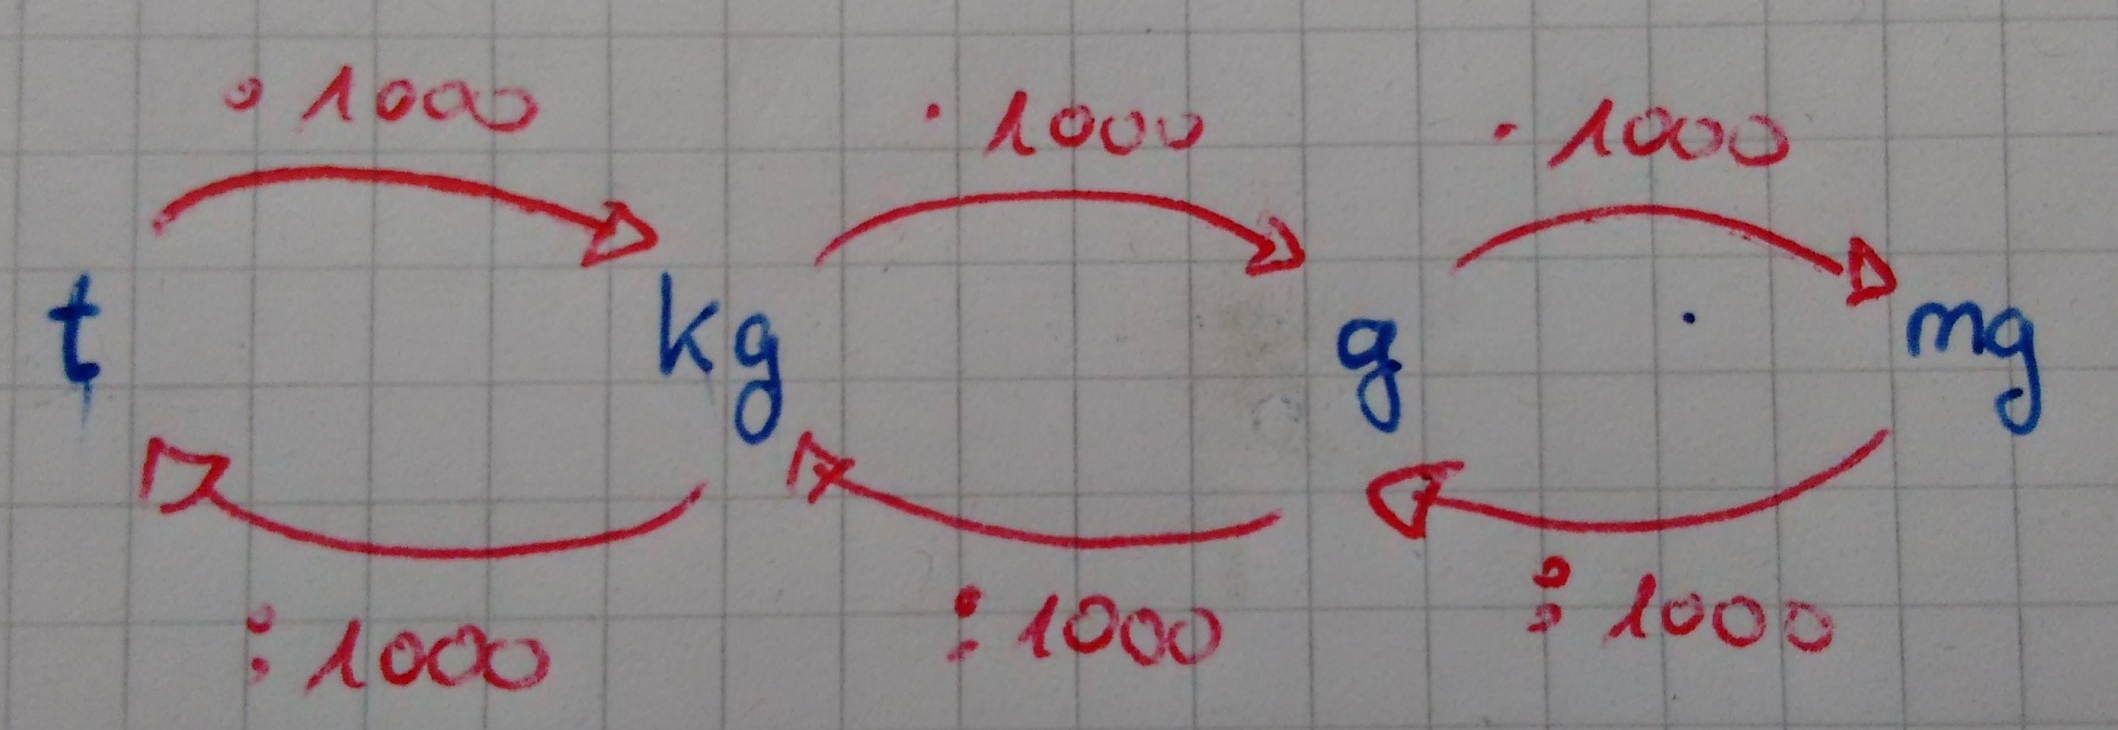 · 1000 · 1000 · 1000
t kg g mg
: 1000 : 1000 : 1000